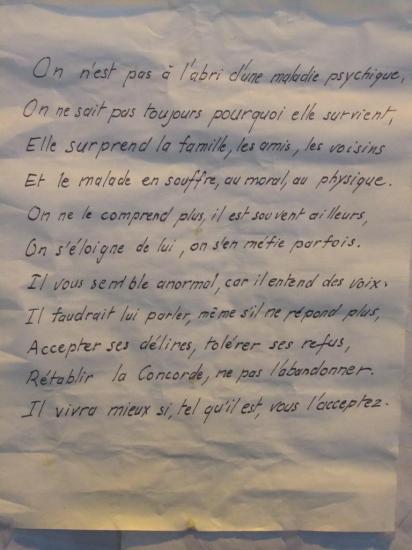 On n'est pas à l'abri d'une maladie psychique,
On ne sait pas toujours pourquoi elle survient,
Elle surprend la famille, les amis, les voisins
Et le malade en souffre, au moral, au physique.
On ne le comprend plus, il est souvent ailleurs,
On s'éloigne de lui, on s'en méfie parfois.
Il vous semble anormal, car il entend des voix.
Il faudrait lui parler, même s'il ne répond plus,
Accepter ses délires, tolérer ses refus,
Rétablir la Concorde, ne pas l'abandonner.
Il vivra mieux si, tel qu'il est, vous l'acceptez.